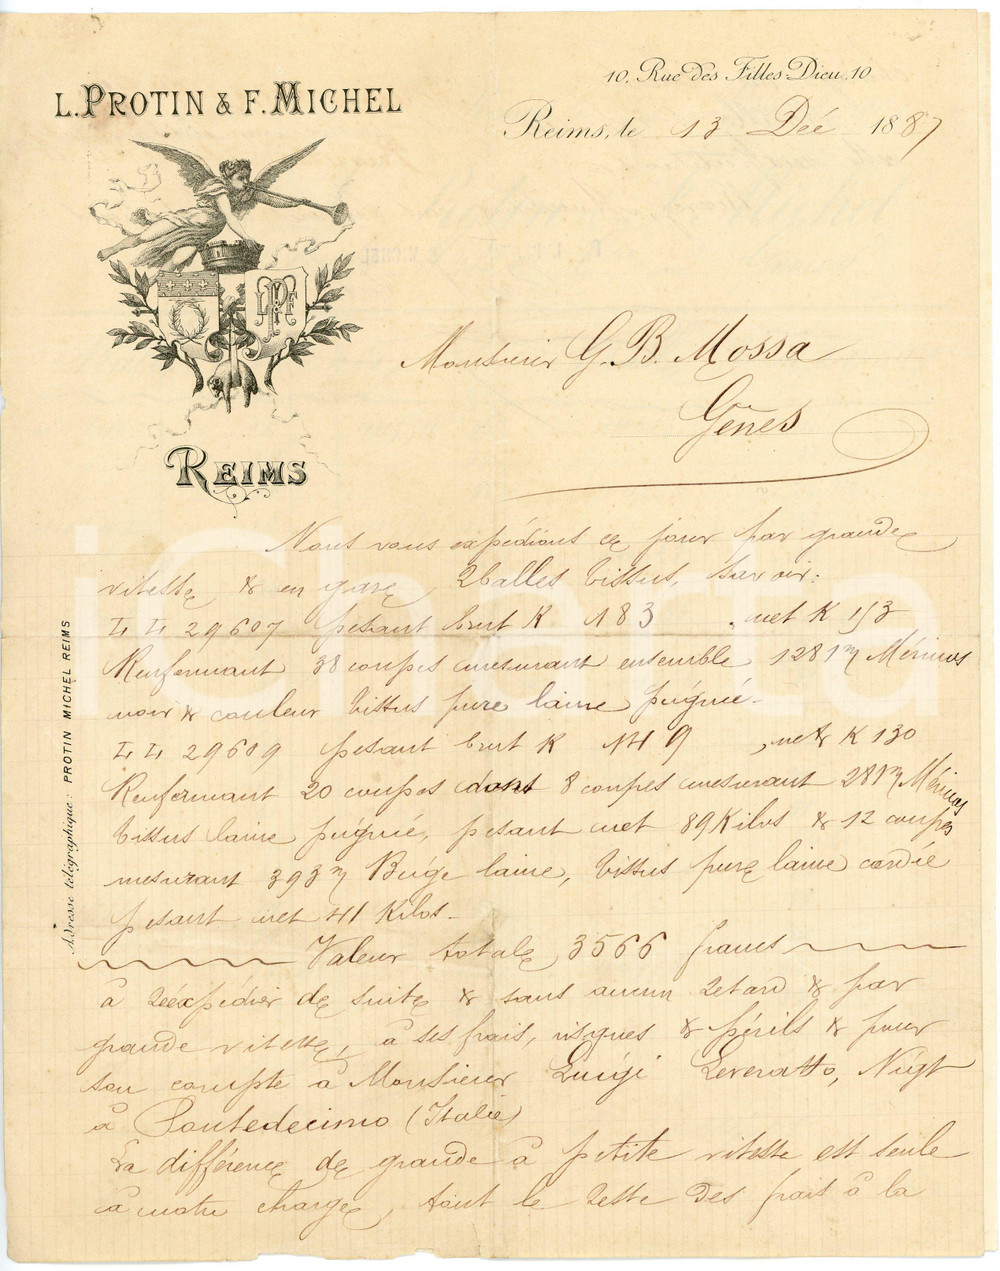 10, Rue des Filles-Dieu, 10
L. PROTIN & F. MICHEL
Reims, le 13 Déc 1887
LPF
REIMS
Monsieur G. B. Mossa
Gênes
Nous vous expédions ce jour par grande
vitesse & en gare 2 balles tissus, savoir:
LL 29607 pesant brut K 183 , net K 153
Renfermant 38 coupes mesurant ensemble 1281m Mérinos
noir & couleur tissus pure laine peignée.
LL 29609 pesant brut K 149 , net K 130
Renfermant 20 coupes dont 8 coupes mesurant 281m Mérinos
tissus laine peignée, pesant net 89 Kilos & 12 coupes
mesurant 393m Beige laine, tissus pure laine cardée
pesant net 41 Kilos.
Valeur totale 3566 francs
à réexpédier de suite & sans aucun retard & par
grande vitesse, à ses frais, risques & périls & pour
son compte à Monsieur Luigi Leveratto, Négt
à Pontedecimo (Italie)
La différence de grande à petite vitesse est seule
à notre charge, tout le reste des frais à la
Adresse télégraphique: PROTIN MICHEL REIMS
iCharta